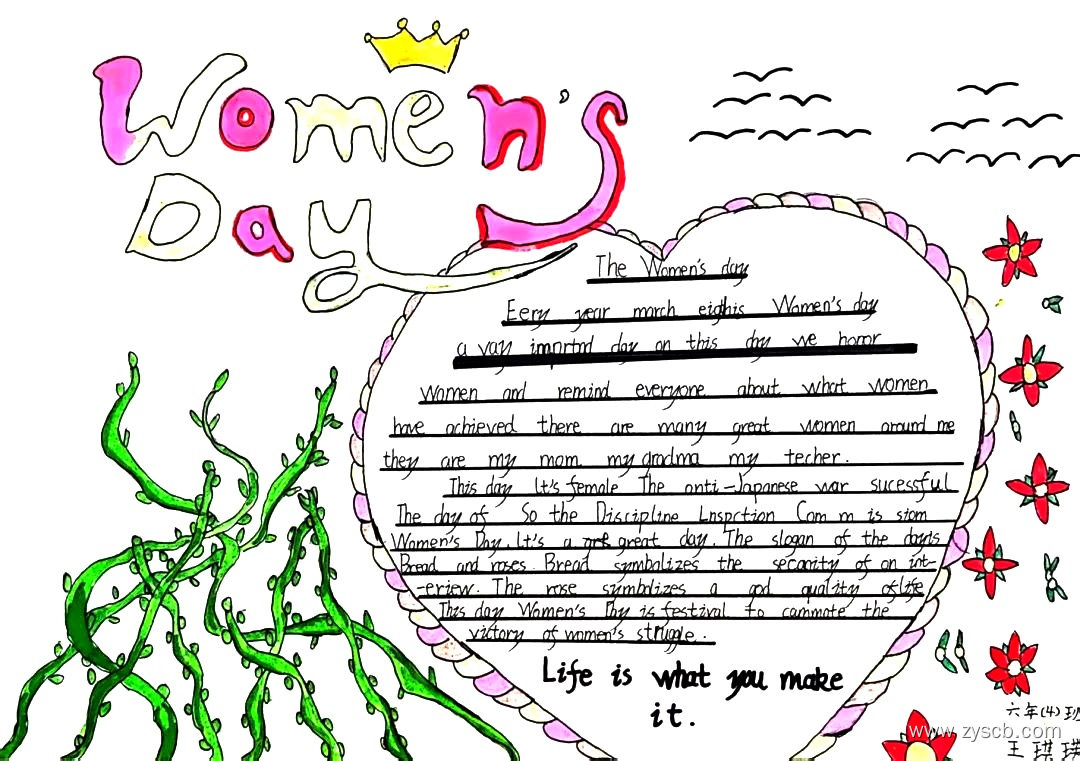 Women's
Day
The Women's day
Eery year march eighis Women's day
a vay imprtnd day on this day we honor
women and remind everyone about what women
have achieved there are many great women around me
they are my mom my gradma my techer.
This day It's female The anti-Japanese war sucessful
The day of So the Discipline Lnspction Com m is siom
Women's Day. It's a great day. The slogan of the dayis
Bread and roses. Bread symbolizes the secanity of an int-
-eriew. The rose symbolizes a god quality of life
This day Women's Day is festival to cammote the
victory of women's struggle.
Life is what you make
it.
六年(4)班
www.zyscb.com
王琪琪